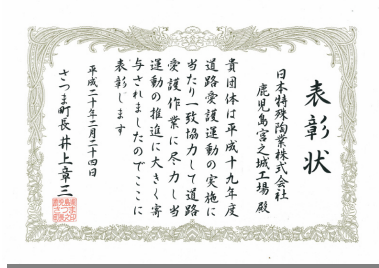 表彰状
日本特殊陶業株式会社
鹿児島宮之城工場 殿
貴団体は平成十九年度
道路愛護運動の実施に
当たり一致協力して道路
愛護作業に尽力し当
運動の推進に大きく寄
与されましたのでここに
表彰します
平成二十年二月二十四日
さつま町長 井上章三